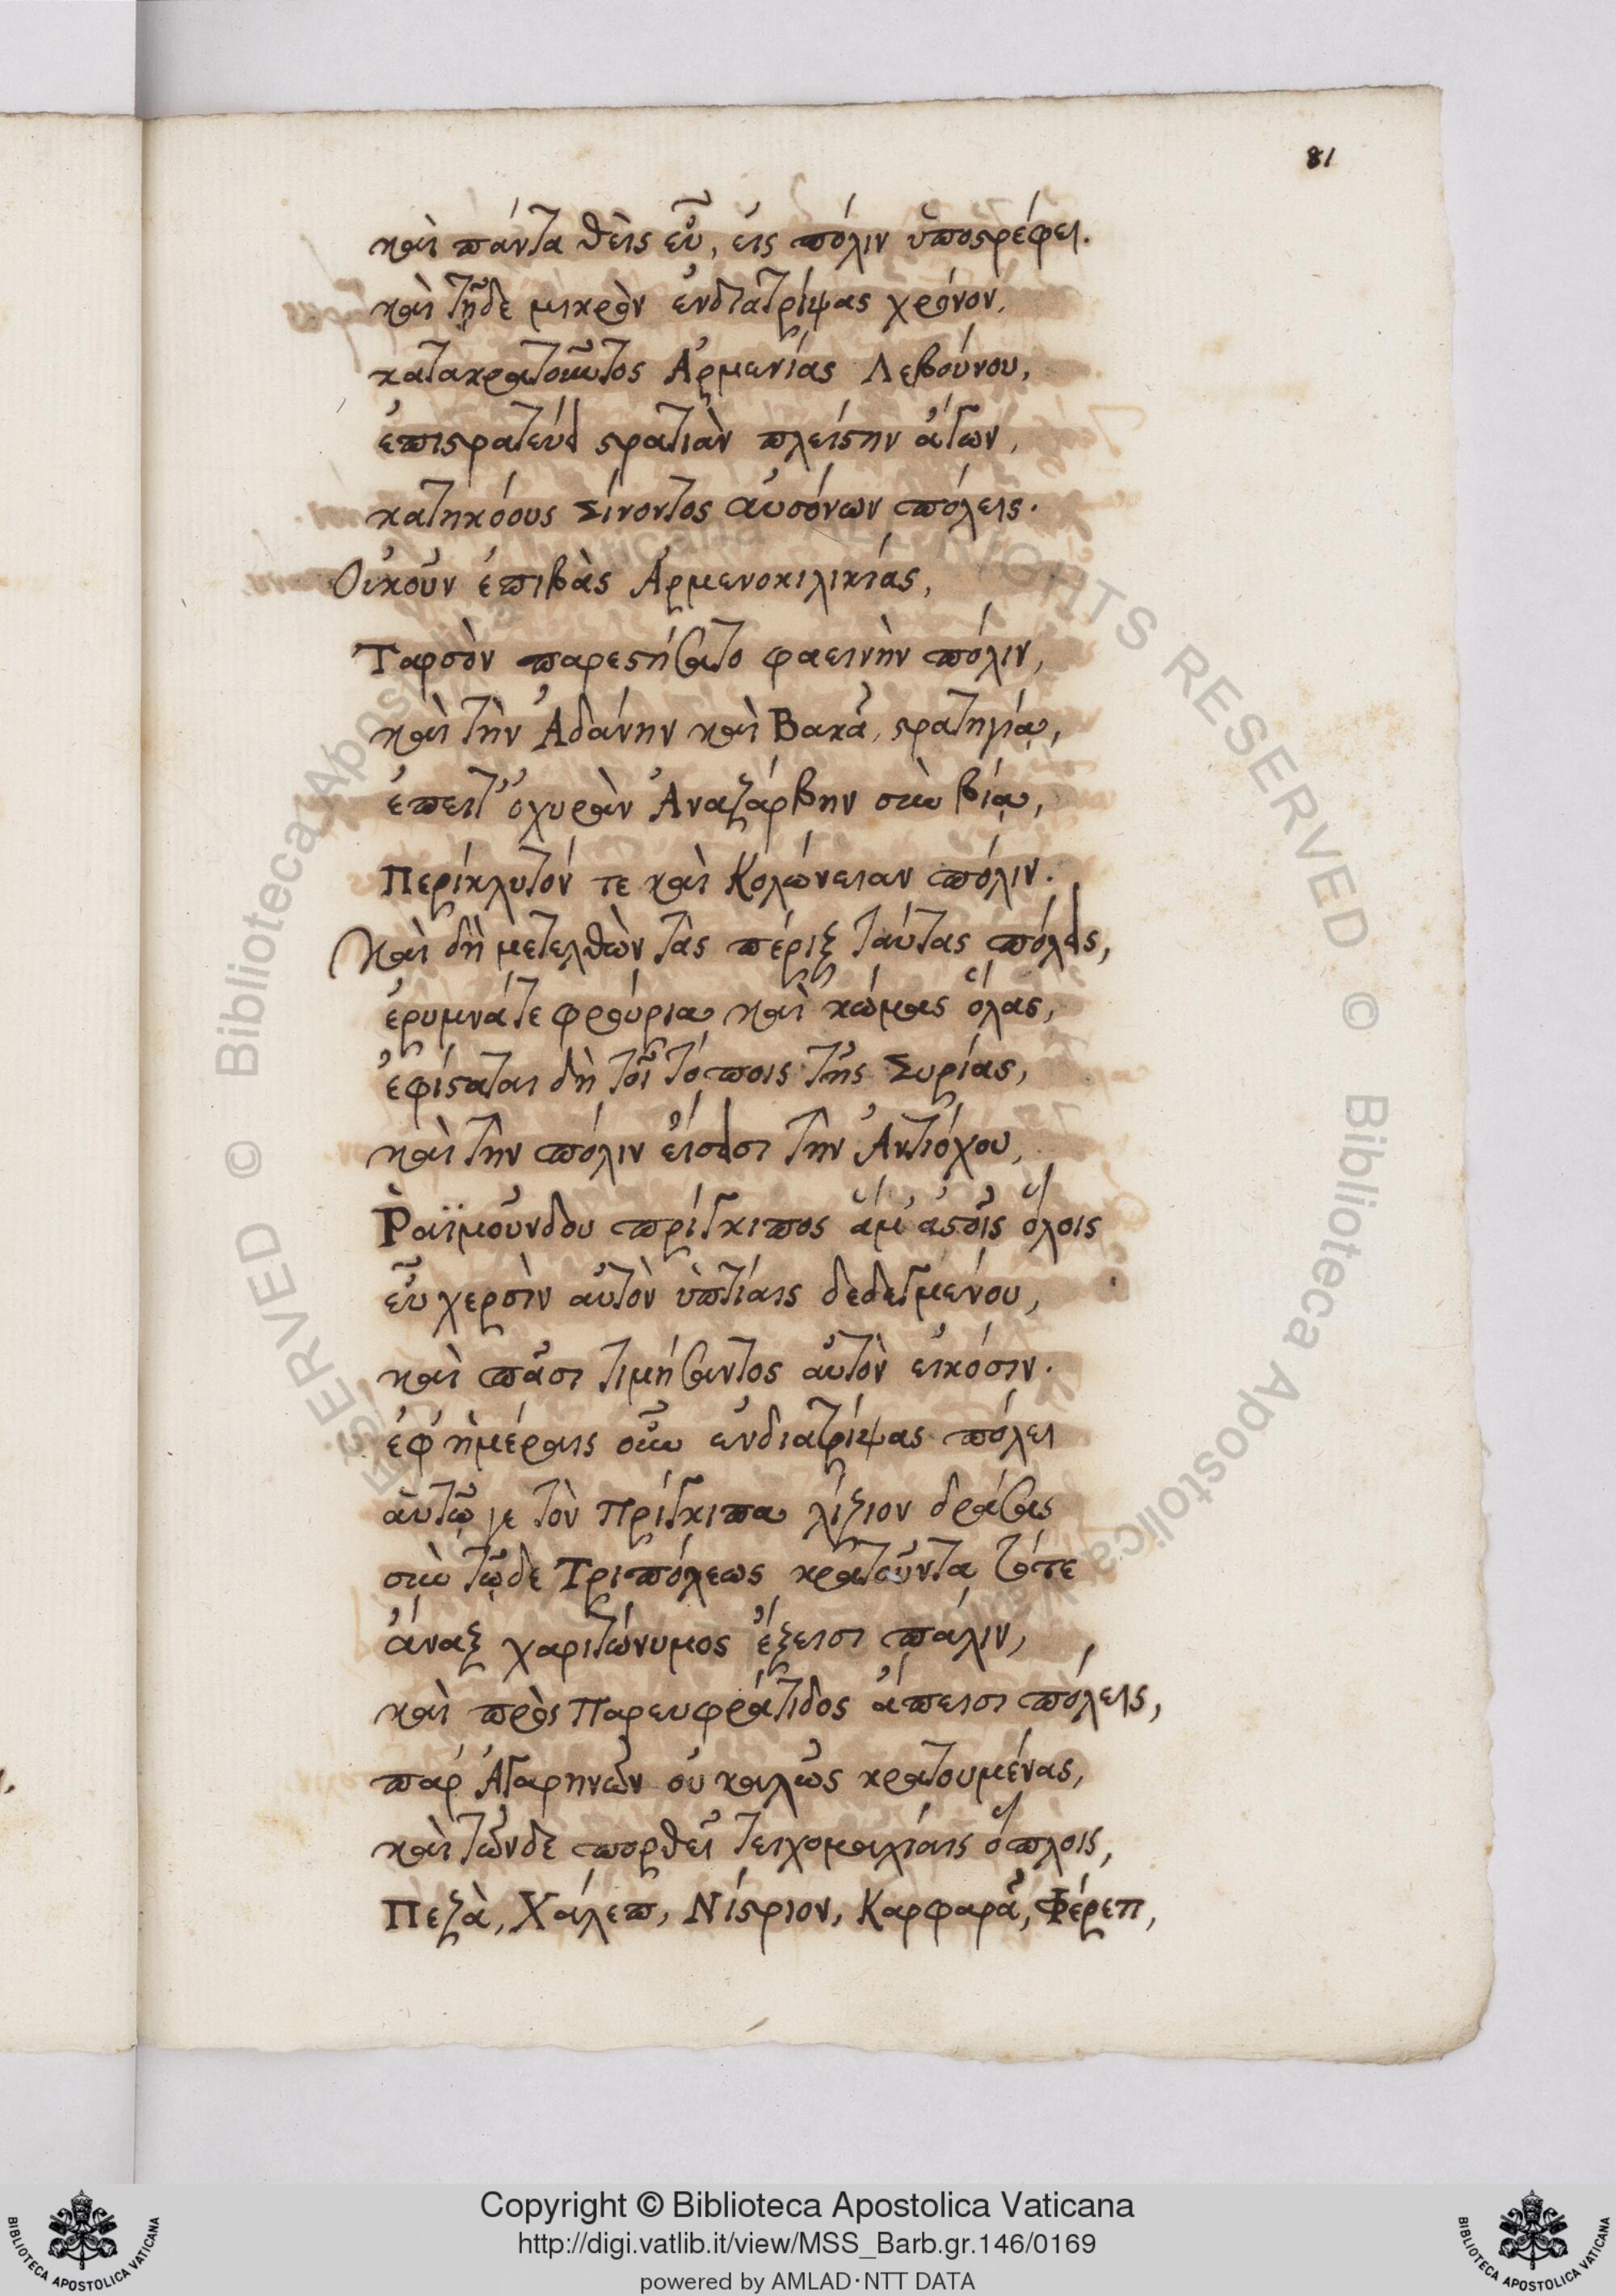 81
καὶ πάντα θεὶς εὖ, εἰς πόλιν ὑποστρέφει.
καὶ τῇδε μικρὸν ἐνδιατρίψας χρόνον,
κατακρατοῦντος Ἀρμενίας Λεβούνου,
ἐπιστρατεύει στρατιὰν πλείστην ἄγων,
κατηκόους Σίνοντος αὐσόνων πόλεις.
Οὐκοῦν ἐπιβὰς Ἀρμενοκιλικίας,
Ταρσὸν παρεστήσατο φαεινὴν πόλιν,
καὶ τὴν Ἀδάνην καὶ Βακᾶ, στρατηγίᾳ,
ἔπειτ' ὀχυρὰν Ἀναζάρβην σὺν βίᾳ,
Περίκλυτόν τε καὶ Κολώνειαν πόλιν.
Καὶ δὴ μετελθὼν τὰς πέριξ ταύτας πόλεις,
ἐρυμνά τε φρούρια καὶ κώμας ὅλας,
ἐφίσταται δὴ τοῖς τόποις τῆς Συρίας,
καὶ τὴν πόλιν εἴσεισι τὴν Ἀντιόχου,
Ῥαϊμούνδου πρίγκιπος ἅμ' ἀστοῖς ὅλοις
εὖ χερσὶν αὐτὸν ὑπτίαις δεδεγμένου,
καὶ πᾶσι τιμήσαντος αὐτὸν εἰκόσιν.
ἐφ' ἡμέραις οὖν ἐνδιατρίψας πόλει
αὐτῷ γε τὸν Πρίγκιπα λίζιον δράσας
σὺν τῷδε Τριπόλεως κρατοῦντα τότε
ἄναξ χαριτώνυμος ἔξεισι πάλιν,
καὶ πρὸς Παρευφράτιδος ἄπεισι πόλεις,
παρ' Ἀγαρηνῶν οὐ καλῶς κρατουμένας,
καὶ τῶνδε πορθεῖ τειχομαχίαις ὅπλοις,
Πεζὰ, Χάλεπ, Νίστριον, Καρφαρᾶ, Φέρεπ,
Copyright © Biblioteca Apostolica Vaticana
http://digi.vatlib.it/view/MSS_Barb.gr.146/0169
powered by AMLAD·NTT DATA